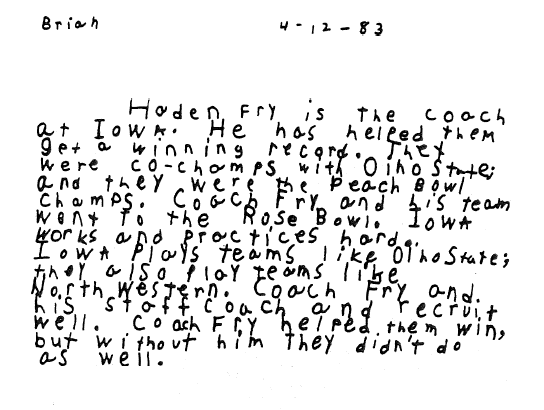 Brian 4-12-83
Haden Fry is the coach
at Iowa. He has helped them
get a winning record. They
were co-champs with OihoState;
and they were the Peach Bowl
champs. Coach Fry and his team
went to the Rose Bowl. Iowa
works and practices hard.
Iowa Plays teams like OihoState;
they also play teams like
North western. Coach Fry and
his staff coach and recruit
well. Coach Fry helped them win,
but without him they didn't do
as well.